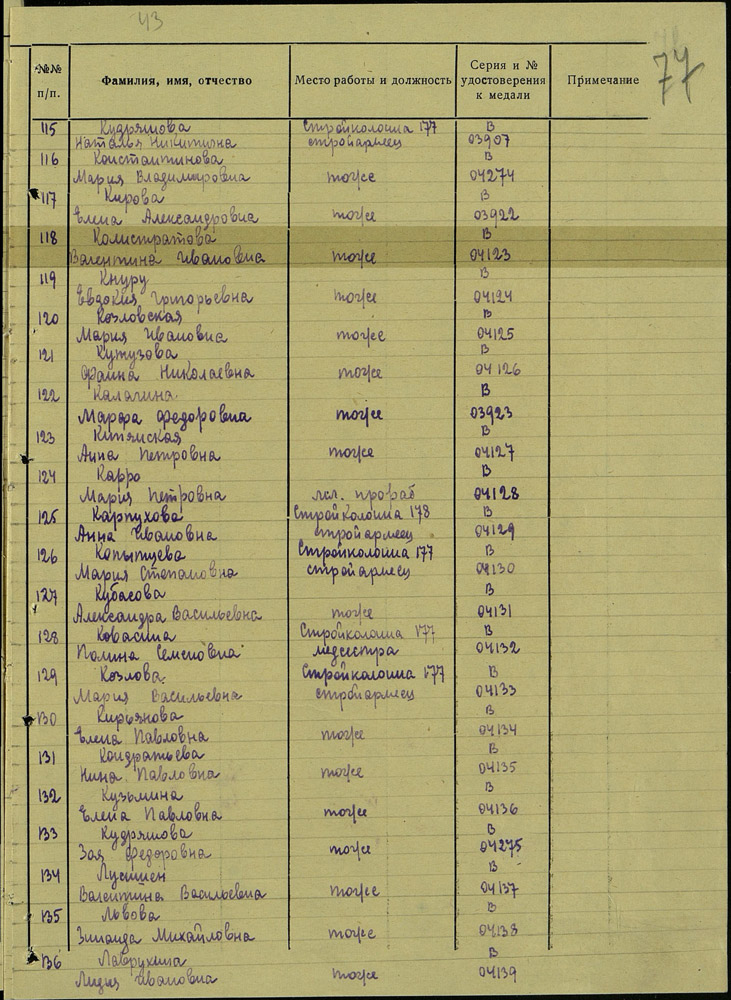 43
77
№№ п/п. Фамилия, имя, отчество Место работы и должность Серия и № удостоверения к медали Примечание
115 Кудряшова Стройколонна 177 В
Наталья Никитична стройармеец 03907
116 Константинова В
Мария Владимировна тоже 04274
117 Кирова В
Елена Александровна тоже 03922
118 Калистратова В
Валентина Ивановна тоже 04123
119 Кнуру В
Евдокия Григорьевна тоже 04124
120 Козловская В
Мария Ивановна тоже 04125
121 Кутузова В
Фаина Николаевна тоже 04126
122 Калагина В
Марфа Федоровна тоже 03923
123 Китайская В
Анна Петровна тоже 04127
124 Карро В
Мария Петровна мл. прораб 04128
125 Карпухова Стройколонна 178 В
Анна Ивановна стройармеец 04129
126 Копытцева Стройколонна 177 В
Мария Степановна стройармеец 04130
127 Кубасова В
Александра Васильевна тоже 04131
128 Ковасина Стройколонна 177 В
Полина Семеновна медсестра 04132
129 Козлова Стройколонна 177 В
Мария Васильевна стройармеец 04133
130 Кирьянова В
Елена Павловна тоже 04134
131 Кондратьева В
Нина Павловна тоже 04135
132 Кузьмина В
Елена Павловна тоже 04136
133 Кудряшова В
Зоя Федоровна тоже 04275
134 В
Валентина Васильевна тоже 04137
135 Львова В
Зинаида Михайловна тоже 04138
136 Лаврухина В
Лидия Ивановна тоже 04139